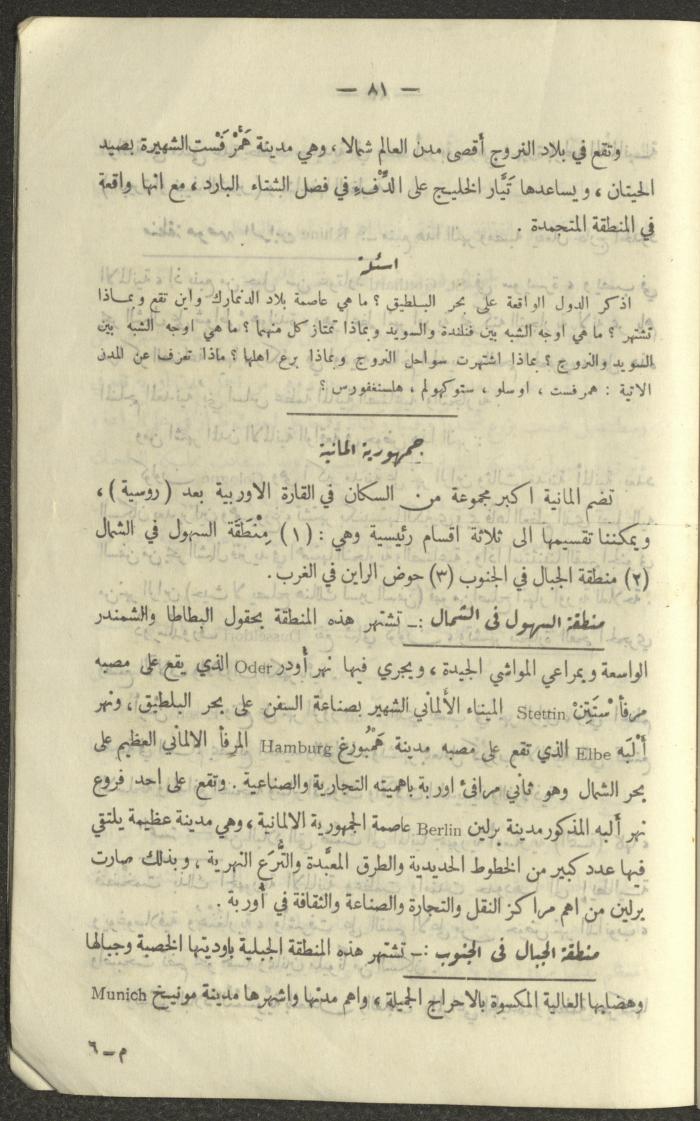 — ٨١ —
وتقع في بلاد النروج أقصى مدن العالم شمالا ، وهي مدينة هَمَّرْ فَسْت الشهيرة بصيد
الحيتان ، ويساعدها تَيَّار الخليج على الدِّفْءِ في فصل الشتاء البارد ، مع انها واقعة
في المنطقة المتجمدة .
اسئلة
اذكر الدول الواقعة على بحر البلطيق ؟ ما هي عاصمة بلاد الدنمارك واين تقع وبماذا
تشتهر ؟ ما هي اوجه الشبه بين فنلندة والسويد وبماذا تمتاز كل منهما ؟ ما هي اوجه الشبه بين
السويد والنروج ؟ بماذا اشتهرت سواحل النروج وبماذا برع اهلها ؟ ماذا تعرف عن المدن
الاتية : همرفست ، اوسلو ، ستوكهولم ، هلسنغفورس ؟
جمهورية المانية
تضم المانية اكبر مجموعة من السكان في القارة الاوربية بعد ( روسية ) ،
ويمكننا تقسيمها الى ثلاثة اقسام رئيسية وهي : (١) مِنْطَقَة السهول في الشمال
(٢) منطقة الجبال في الجنوب (٣) حوض الراين في الغرب .
منطقة السهول في الشمال :ــ تشتهر هذه المنطقة بحقول البطاطا والشمندر
الواسعة وبمراعي المواشي الجيدة ، ويجري فيها نهر أودر Oder الذي يقع على مصبه
مرفأ سْتَتِنْ Stettin الميناء الألماني الشهير بصناعة السفن على بحر البلطيق ، ونهر
أَلْبَه Elbe الذي تقع على مصبه مدينة هَمْبُورغ Hamburg المرفأ الالماني العظيم على
بحر الشمال وهو ثاني مرافئ اوربة باهميته التجارية والصناعية . وتقع على احد فروع
نهر ألبه المذكور مدينة برلين Berlin عاصمة الجمهورية الالمانية ، وهي مدينة عظيمة يلتقي
فيها عدد كبير من الخطوط الحديدية والطرق المعبَّدة والتُّرَع النهرية ، وبذلك صارت
برلين من اهم مراكز النقل والتجارة والصناعة والثقافة في أوربة .
منطقة الجبال في الجنوب :ــ تشتهر هذه المنطقة الجبلية باوديتها الخصبة وجبالها
وهضابها العالية المكسوة بالاحراج الجميلة ، واهم مدنها واشهرها مدينة مونيـخ Munich
م ــ ٦